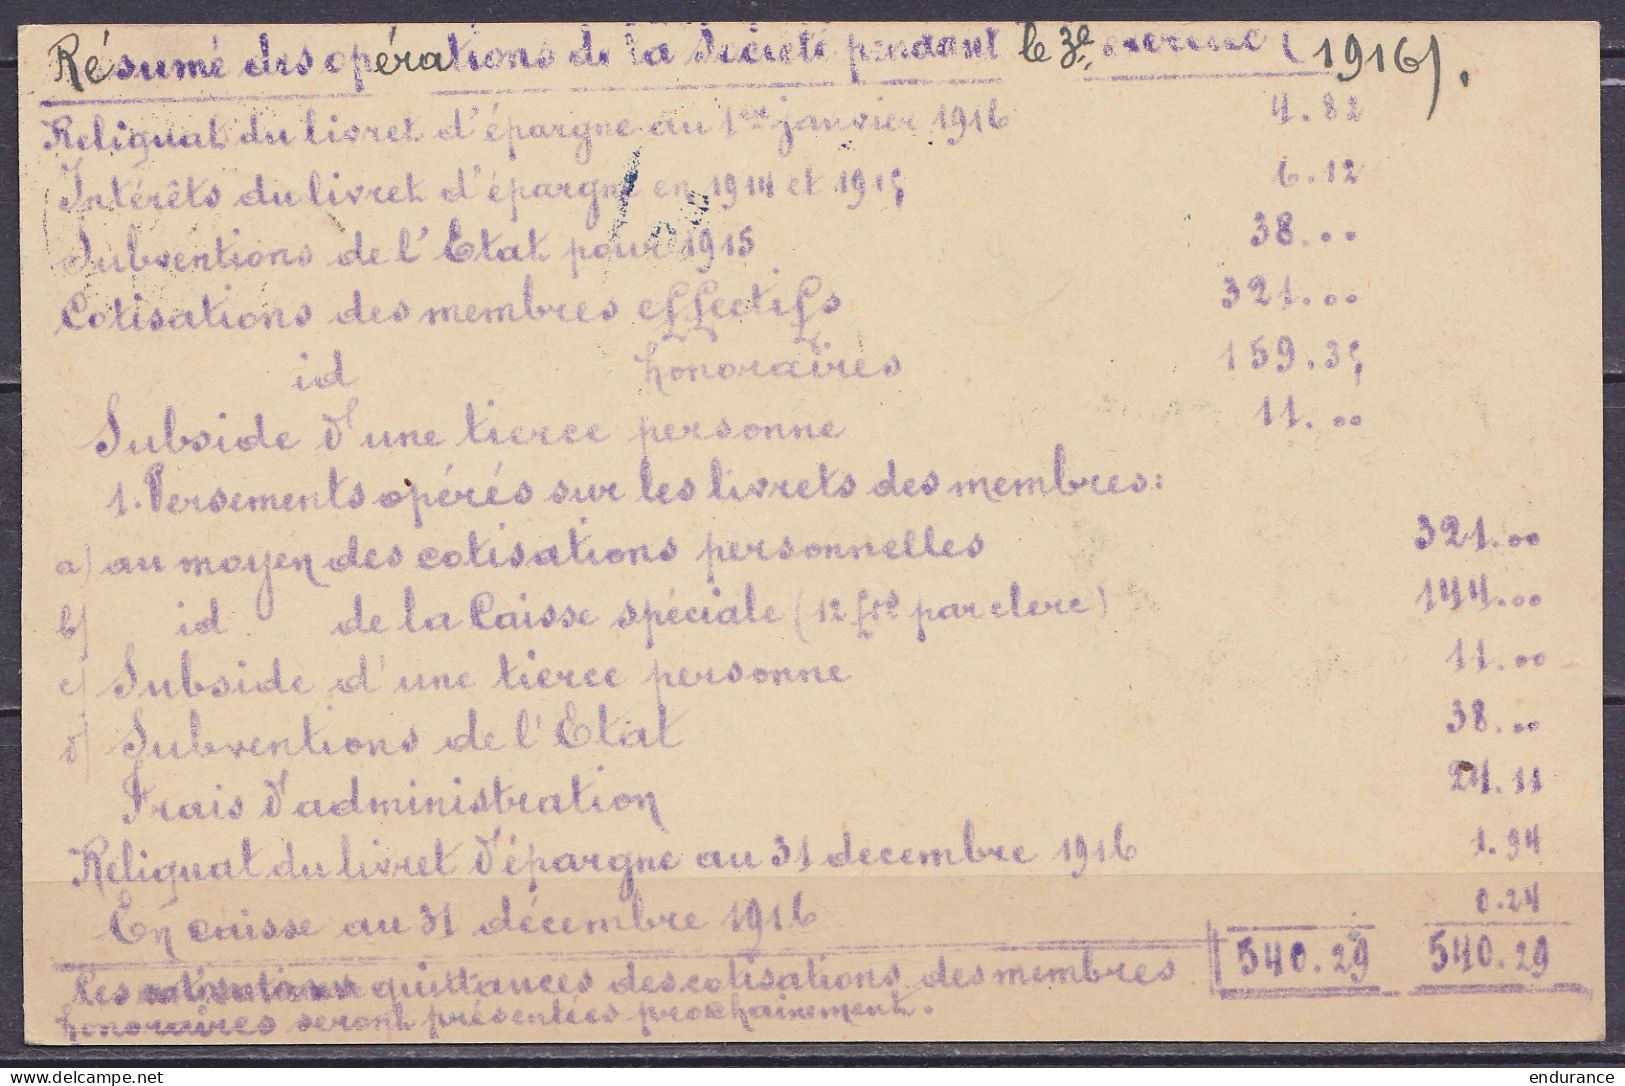 Résumé des opérations de la Société pendant le 3e exercice (1916).
Reliquat du livret d'épargne au 1er janvier 1916 4.82
Intérêts du livret d'épargne en 1914 et 1915 6.12
Subventions de l'Etat pour 1915 38...
Cotisations des membres effectifs 321.00
id honoraires 159.35
Subside d'une tierce personne 11.00
1. Versements opérés sur les livrets des membres:
a) au moyen des cotisations personnelles 321.00
b) id de la Caisse spéciale (12 frs par clerc) 144.00
c) Subside d'une tierce personne 11.00
d) Subventions de l'Etat 38...
Frais d'administration 24.11
Reliquat du livret d'épargne au 31 decembre 1916 1.94
En caisse au 31 décembre 1916 0.24
540.29 540.29
Les quittances des cotisations des membres
honoraires seront présentées prochainement.
www.delcampe.net
endurance